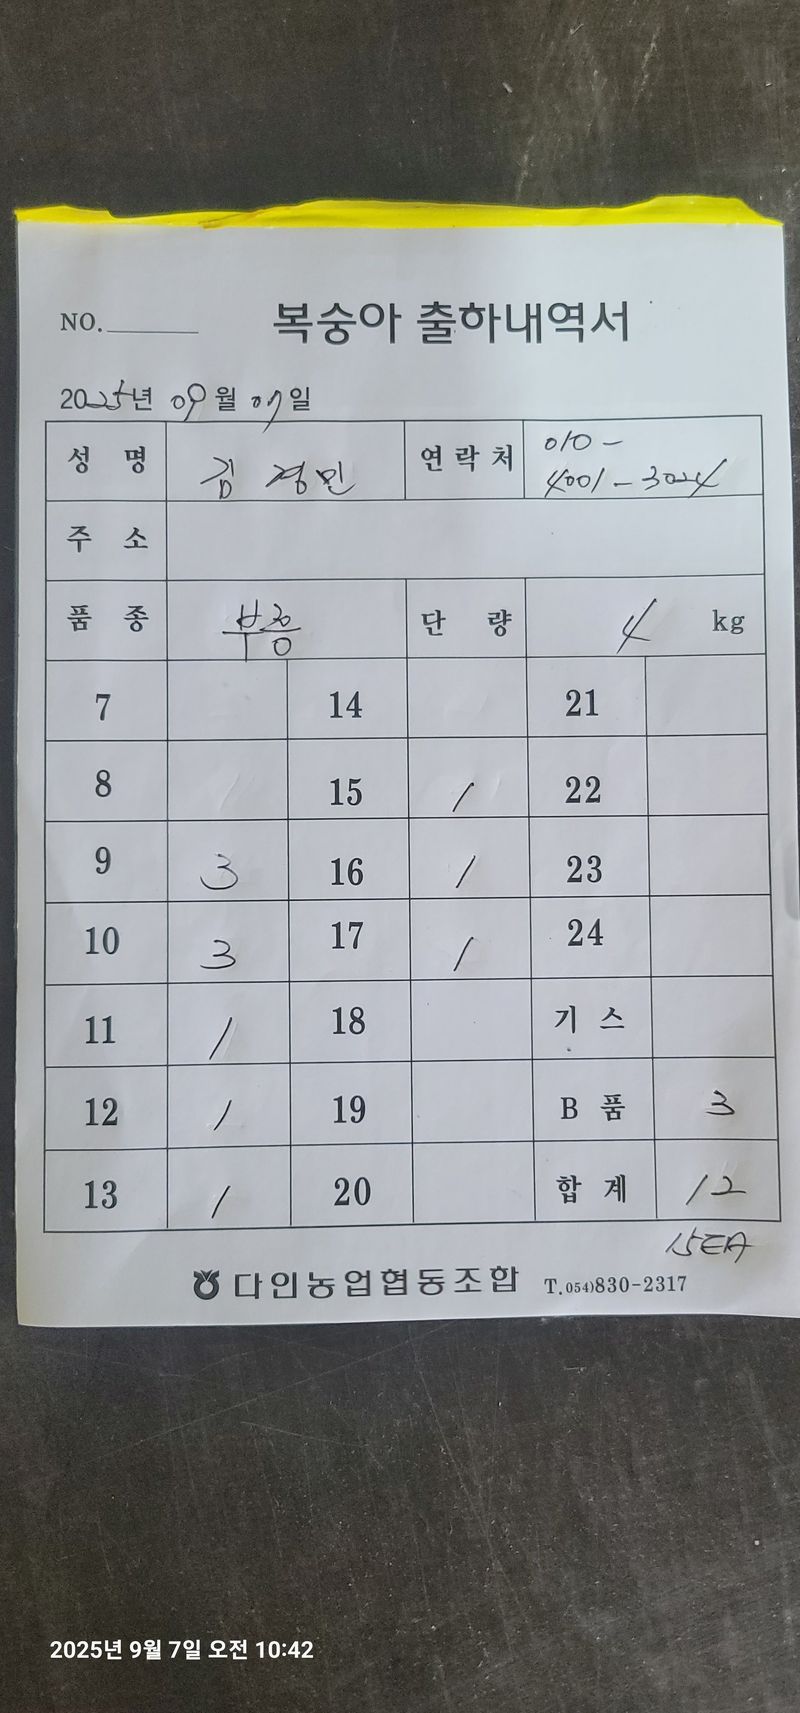 NO.
복숭아 출하내역서
2025년 09월 07일
성 명 김경민 연락처 010-
4001-3024
주 소
품 종 부흥 단 량 4 kg
7 14 21
8 15 / 22
9 3 16 / 23
10 3 17 / 24
11 / 18 기 스
12 / 19 B 품 3
13 / 20 합 계 12
15EA
다인농업협동조합 T.054)830-2317
2025년 9월 7일 오전 10:42